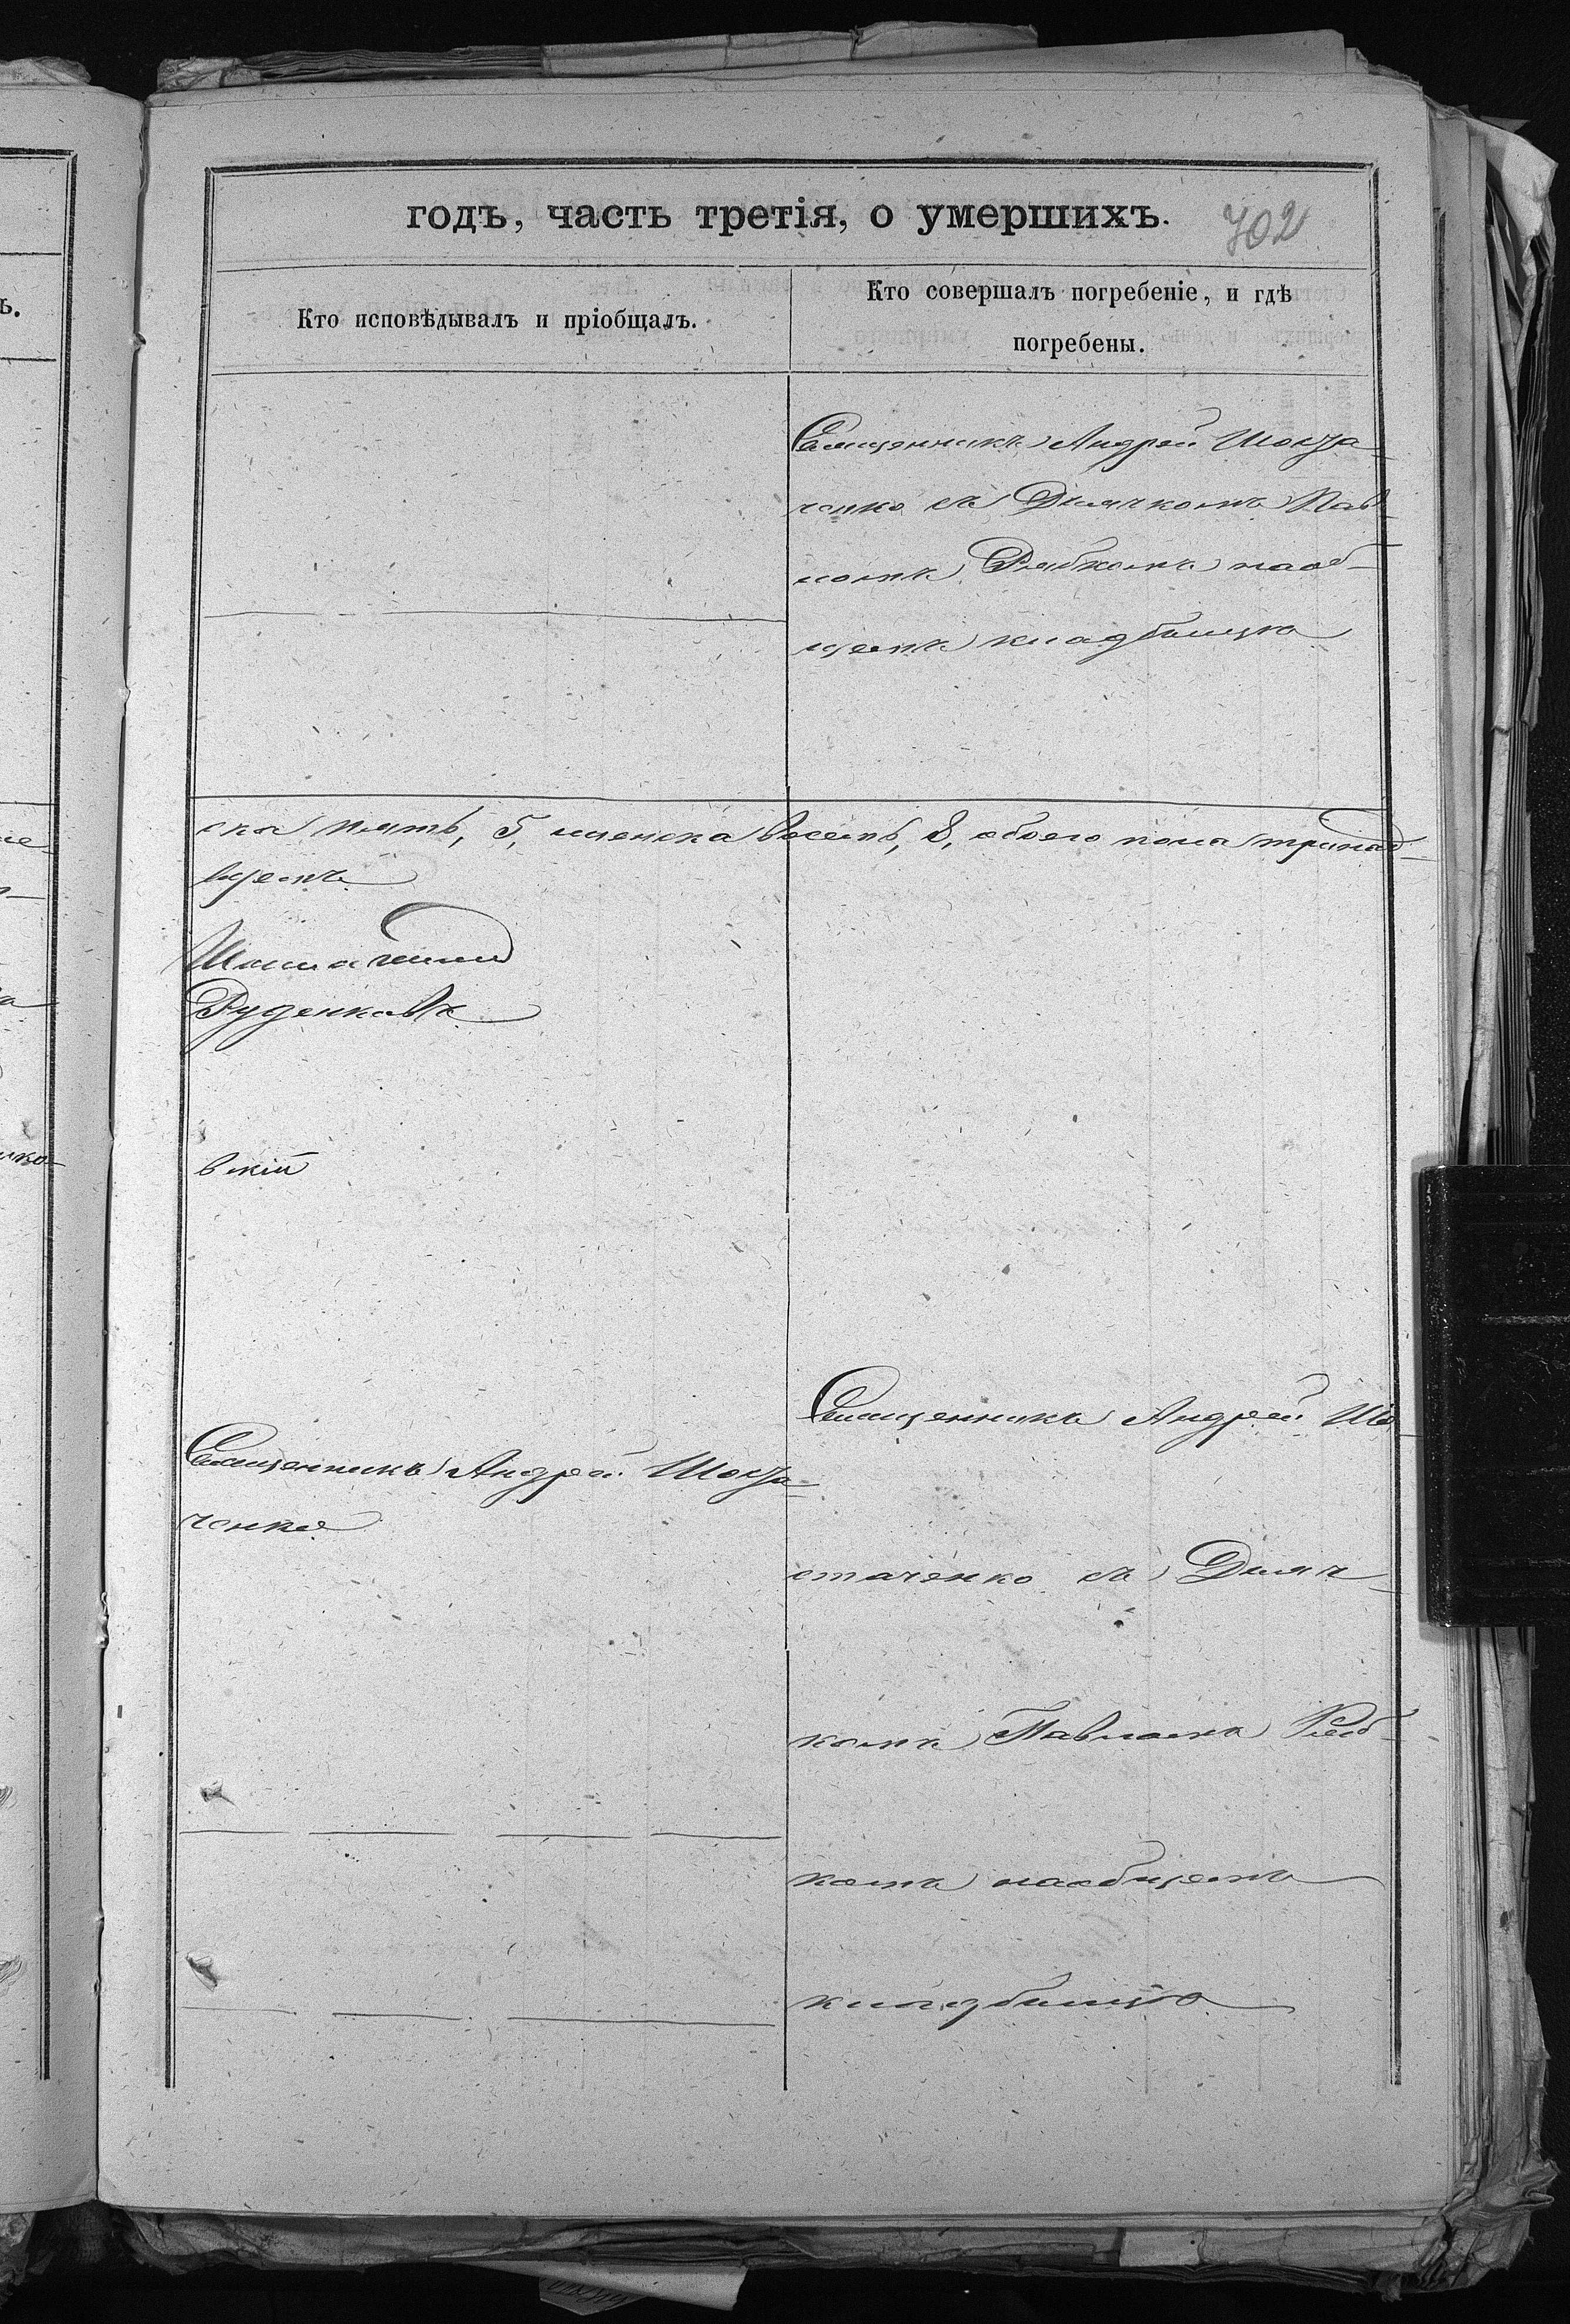 годъ, часть третія, о умершихъ.
702
Кто исповѣдывалъ и пріобщалъ.
Кто совершалъ погребеніе, и гдѣ
погребены.
Священникъ Андрей Шоста-
ченко съ Дьячкомъ Пав-
ломъ Рябкомъ наоб-
щемъ кладбищѣ
ска пять, 5, женска восемь, 8, обоего пола тринад-
цать
Руденковъ
вскій
Священникъ Андрей Шоста-
ченко
Священникъ Андрей Шо-
стаченко съ Дьяч-
комъ Павломъ Ряб-
комъ наобщемъ
кладбищѣ